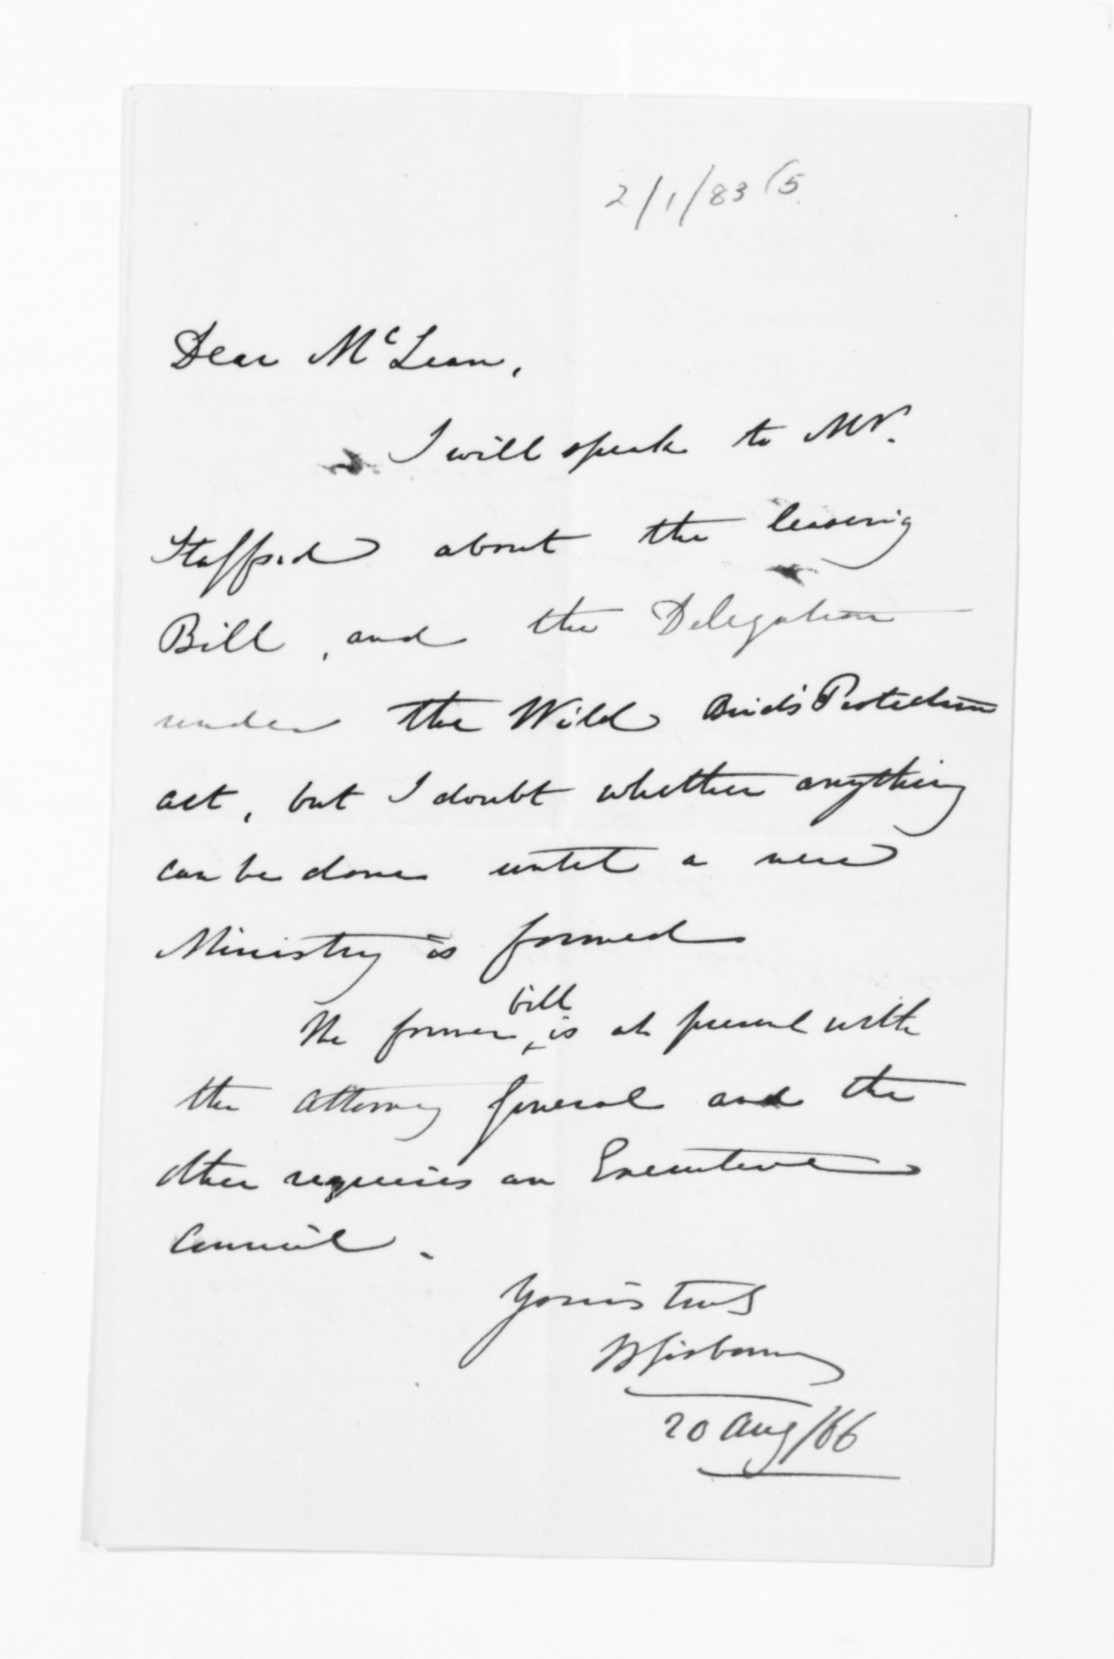 2/1/83 (5
Dear McLean,
I will speak to Mr.
Stafford about the leasing
Bill, and the Delegation
under the Wild Birds Protection
act, but I doubt whether anything
can be done until a new
Ministry is formed
The former bill is at present with
the Attorney General and the
other requires an Executive
Council.
Yours truly
W Gisborne
20 Aug/66